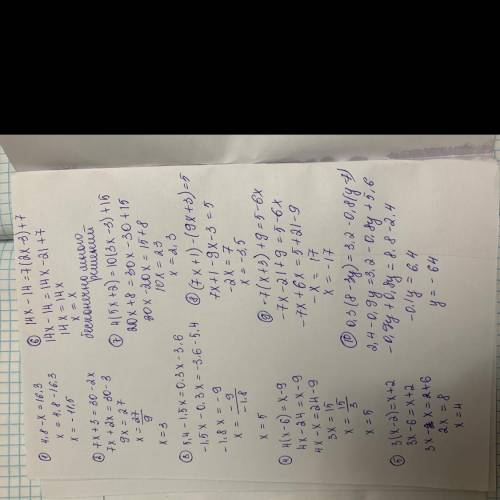 ① 4,8 - x = 16,3
x = 4,8 - 16,3
x = - 11,5
② 7x + 3 = 30 - 2x
7x + 2x = 30 - 3
9x = 27
x = 27/9
x = 3
③ 5,4 - 1,5x = 0,3x - 3,6
-1,5x - 0,3x = -3,6 - 5,4
-1.8x = -9
x = -9/-1.8
x = 5
④ 4(x-6) = x-9
4x - 24 = x - 9
4x - x = 24 - 9
3x = 15
x = 15/3
x = 5
⑤ 3(x-2) = x+2
3x - 6 = x + 2
3x - x = 2+6
2x = 8
x = 4
⑥ 14x - 14 = 7(2x-3)+7
14x - 14 = 14x - 21 + 7
14x = 14x
x = x
бесконечно много
решений
⑦ 4(5x+2) = 10(3x-3)+15
20x + 8 = 30x - 30 + 15
30x - 20x = 15 + 8
10x = 23
x = 2,3
⑧ (7x+1) - (9x+3) = 5
7x + 1 - 9x - 3 = 5
-2x = 7
x = -3,5
⑨ -7(x+3) + 9 = 5 - 6x
-7x - 21 + 9 = 5 - 6x
-7x + 6x = 5 + 21 - 9
-x = 17
x = -17
⑩ 0,3(8-3y) = 3,2 - 0,8(y-7)
2,4 - 0,9y = 3,2 - 0,8y + 5,6
-0,9y + 0,8y = 8.8 - 2.4
-0.1y = 6,4
y = - 64